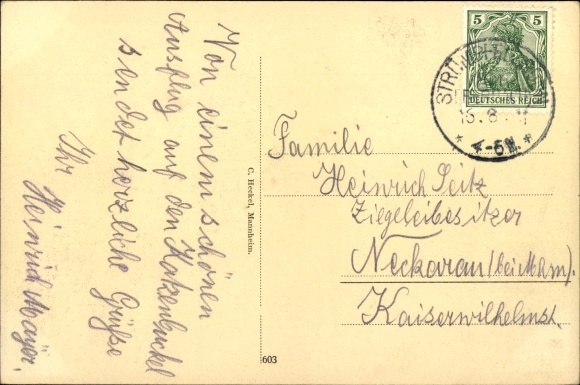 Von einem schönen
Ausflug auf den Katzenbuckel
sendet herzliche Grüße
Ihr
Heinrich Mayer.
C. Heckel, Mannheim.
603
5 5
DEUTSCHES REICH
STRÜMPF
4-5N.
Familie
Heinrich Seitz
Ziegeleibesitzer
Neckarau (bei Mann).
Kaiserwilhelmst.